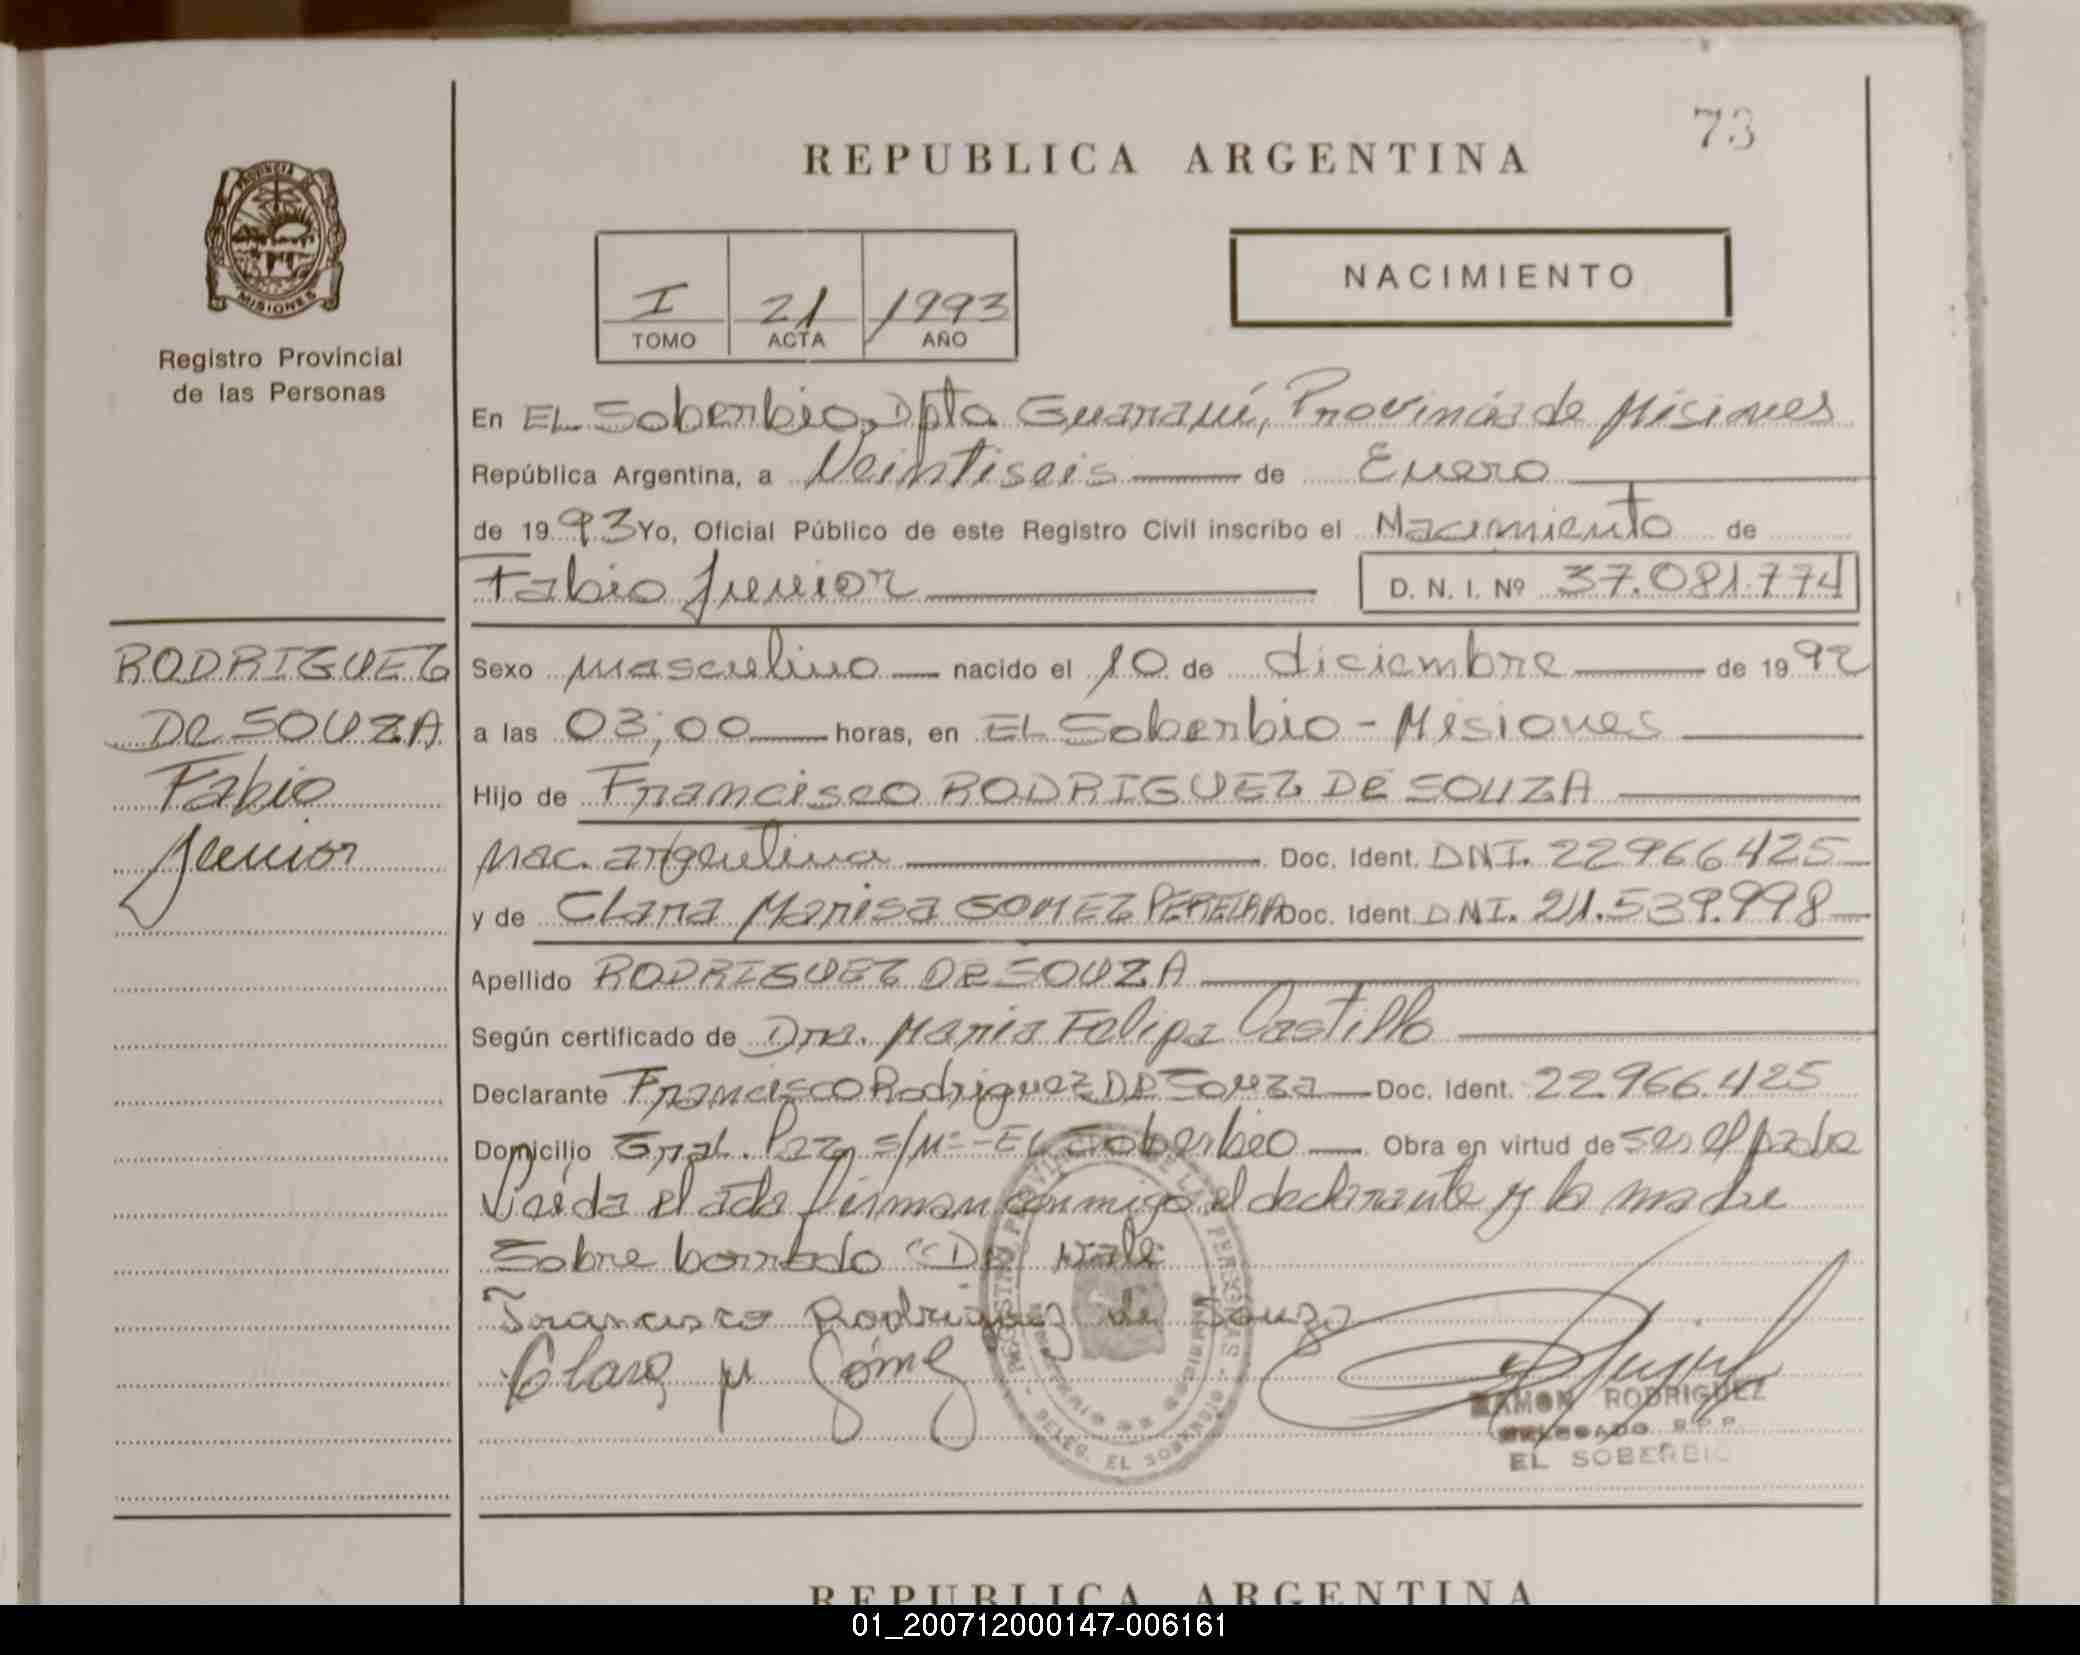 73
REPUBLICA ARGENTINA
PROVINCIA DE
MISIONES
Registro Provincial
de las Personas
I 21 1993
TOMO ACTA AÑO
NACIMIENTO
En EL Soberbio, Dpto Guaraní, Provincia de Misiones
República Argentina, a Veintiseis de Enero
de 1993 Yo, Oficial Público de este Registro Civil inscribo el Nacimiento de
Fabio Junior D. N. I. Nº 37.081.774
RODRIGUEZ
DE SOUZA
Fabio
Junior
Sexo masculino nacido el 10 de diciembre de 1992
a las 03;00 horas, en EL Soberbio - Misiones
Hijo de Francisco RODRIGUEZ DE SOUZA
Nac. argentina Doc. Ident. DNI. 22966425
y de Clara Marisa GOMEZ PEREIRA Doc. Ident. DNI. 21.539.998
Apellido RODRIGUEZ DE SOUZA
Según certificado de Dra. Maria Felipa Castillo
Declarante Francisco Rodriguez De Souza Doc. Ident. 22.966.425
Domicilio Gral. Paz s/Nº - EL Soberbio Obra en virtud de ser el padre
Leída el acta firman conmigo el declarante y la madre
Sobre borrado "De Vale
Francisco Rodriguez de Souza
Clara M Gómez
REGISTRO PROVINCIAL DE LAS PERSONAS
DELEG. EL SOBERBIO
RAMON RODRIGUEZ
DELEGADO R.P.P.
EL SOBERBIO
REPUBLICA ARGENTINA
01_200712000147-006161